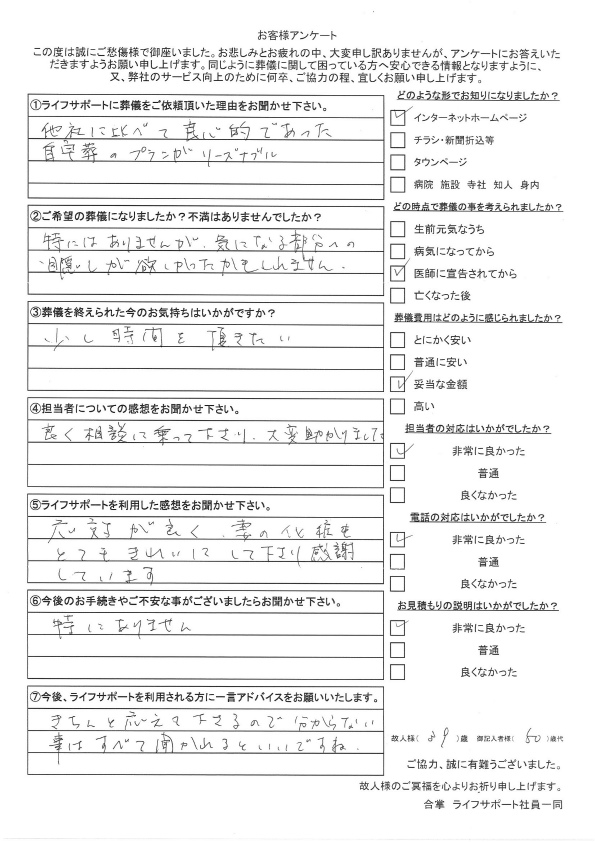 お客様アンケート
この度は誠にご愁傷様で御座いました。お悲しみとお疲れの中、大変申し訳ありませんが、アンケートにお答えいた
だきますようお願い申し上げます。同じように葬儀に関して困っている方へ安心できる情報となりますように、
又、弊社のサービス向上のために何卒、ご協力の程、宜しくお願い申し上げます。
①ライフサポートに葬儀をご依頼頂いた理由をお聞かせ下さい。
他社に比べて良心的であった
自宅葬のプランがリーズナブル
②ご希望の葬儀になりましたか？不満はありませんでしたか？
特にはありませんが、気になる部分への
目隠しが欲しかったかもしれません。
③葬儀を終えられた今のお気持ちはいかがですか？
少し時間を頂きたい
④担当者についての感想をお聞かせ下さい。
良く相談に乗って下さり、大変助かりました
⑤ライフサポートを利用した感想をお聞かせ下さい。
応対が良く、妻の化粧も
とてもきれいにして下さり感謝
しています
⑥今後のお手続きやご不安な事がございましたらお聞かせ下さい。
特にありません
⑦今後、ライフサポートを利用される方に一言アドバイスをお願いいたします。
きちんと応えて下さるので分からない
事はすべて聞かれるといいですね。
どのような形でお知りになりましたか？
インターネットホームページ
チラシ・新聞折込等
タウンページ
病院 施設 寺社 知人 身内
どの時点で葬儀の事を考えられましたか？
生前元気なうち
病気になってから
医師に宣告されてから
亡くなった後
葬儀費用はどのように感じられましたか？
とにかく安い
普通に安い
妥当な金額
高い
担当者の対応はいかがでしたか？
非常に良かった
普通
良くなかった
電話の対応はいかがでしたか？
非常に良かった
普通
良くなかった
お見積もりの説明はいかがでしたか？
非常に良かった
普通
良くなかった
故人様( 39 )歳 御記入者様( 50 )歳代
ご協力、誠に有難うございました。
故人様のご冥福を心よりお祈り申し上げます。
合掌 ライフサポート社員一同